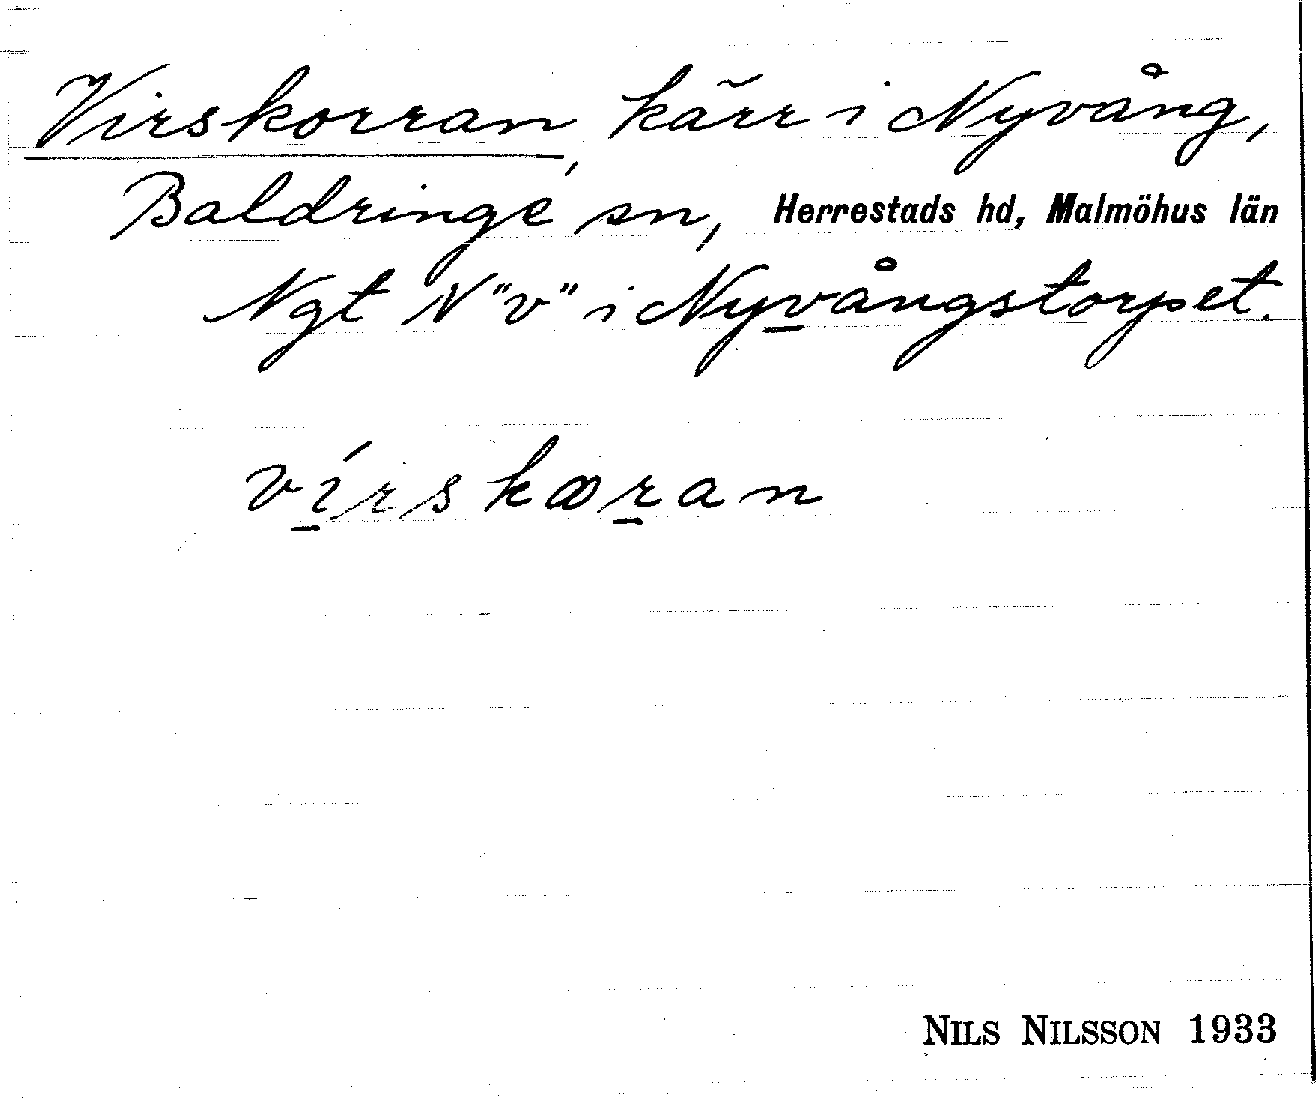 Virskorran, kärr i Nyvång,
Baldringe sn, Herrestads hd, Malmöhus län
Ngt N "v" i Nyvångstorpet.
ví̱rskꝏṟan
NILS NILSSON 1933